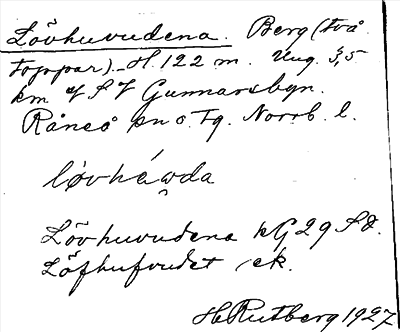 Lövhuvudena. Berg (två
toppar). H. 122 m. Ung. 3,5
km of SV Gunnarsbyn.
Råneå sn o. Tg. Norrb. l.
lóvhéwda
Lövhuvudena kG 29 SO.
Löfhufvudet ek.
H Rutberg 1927